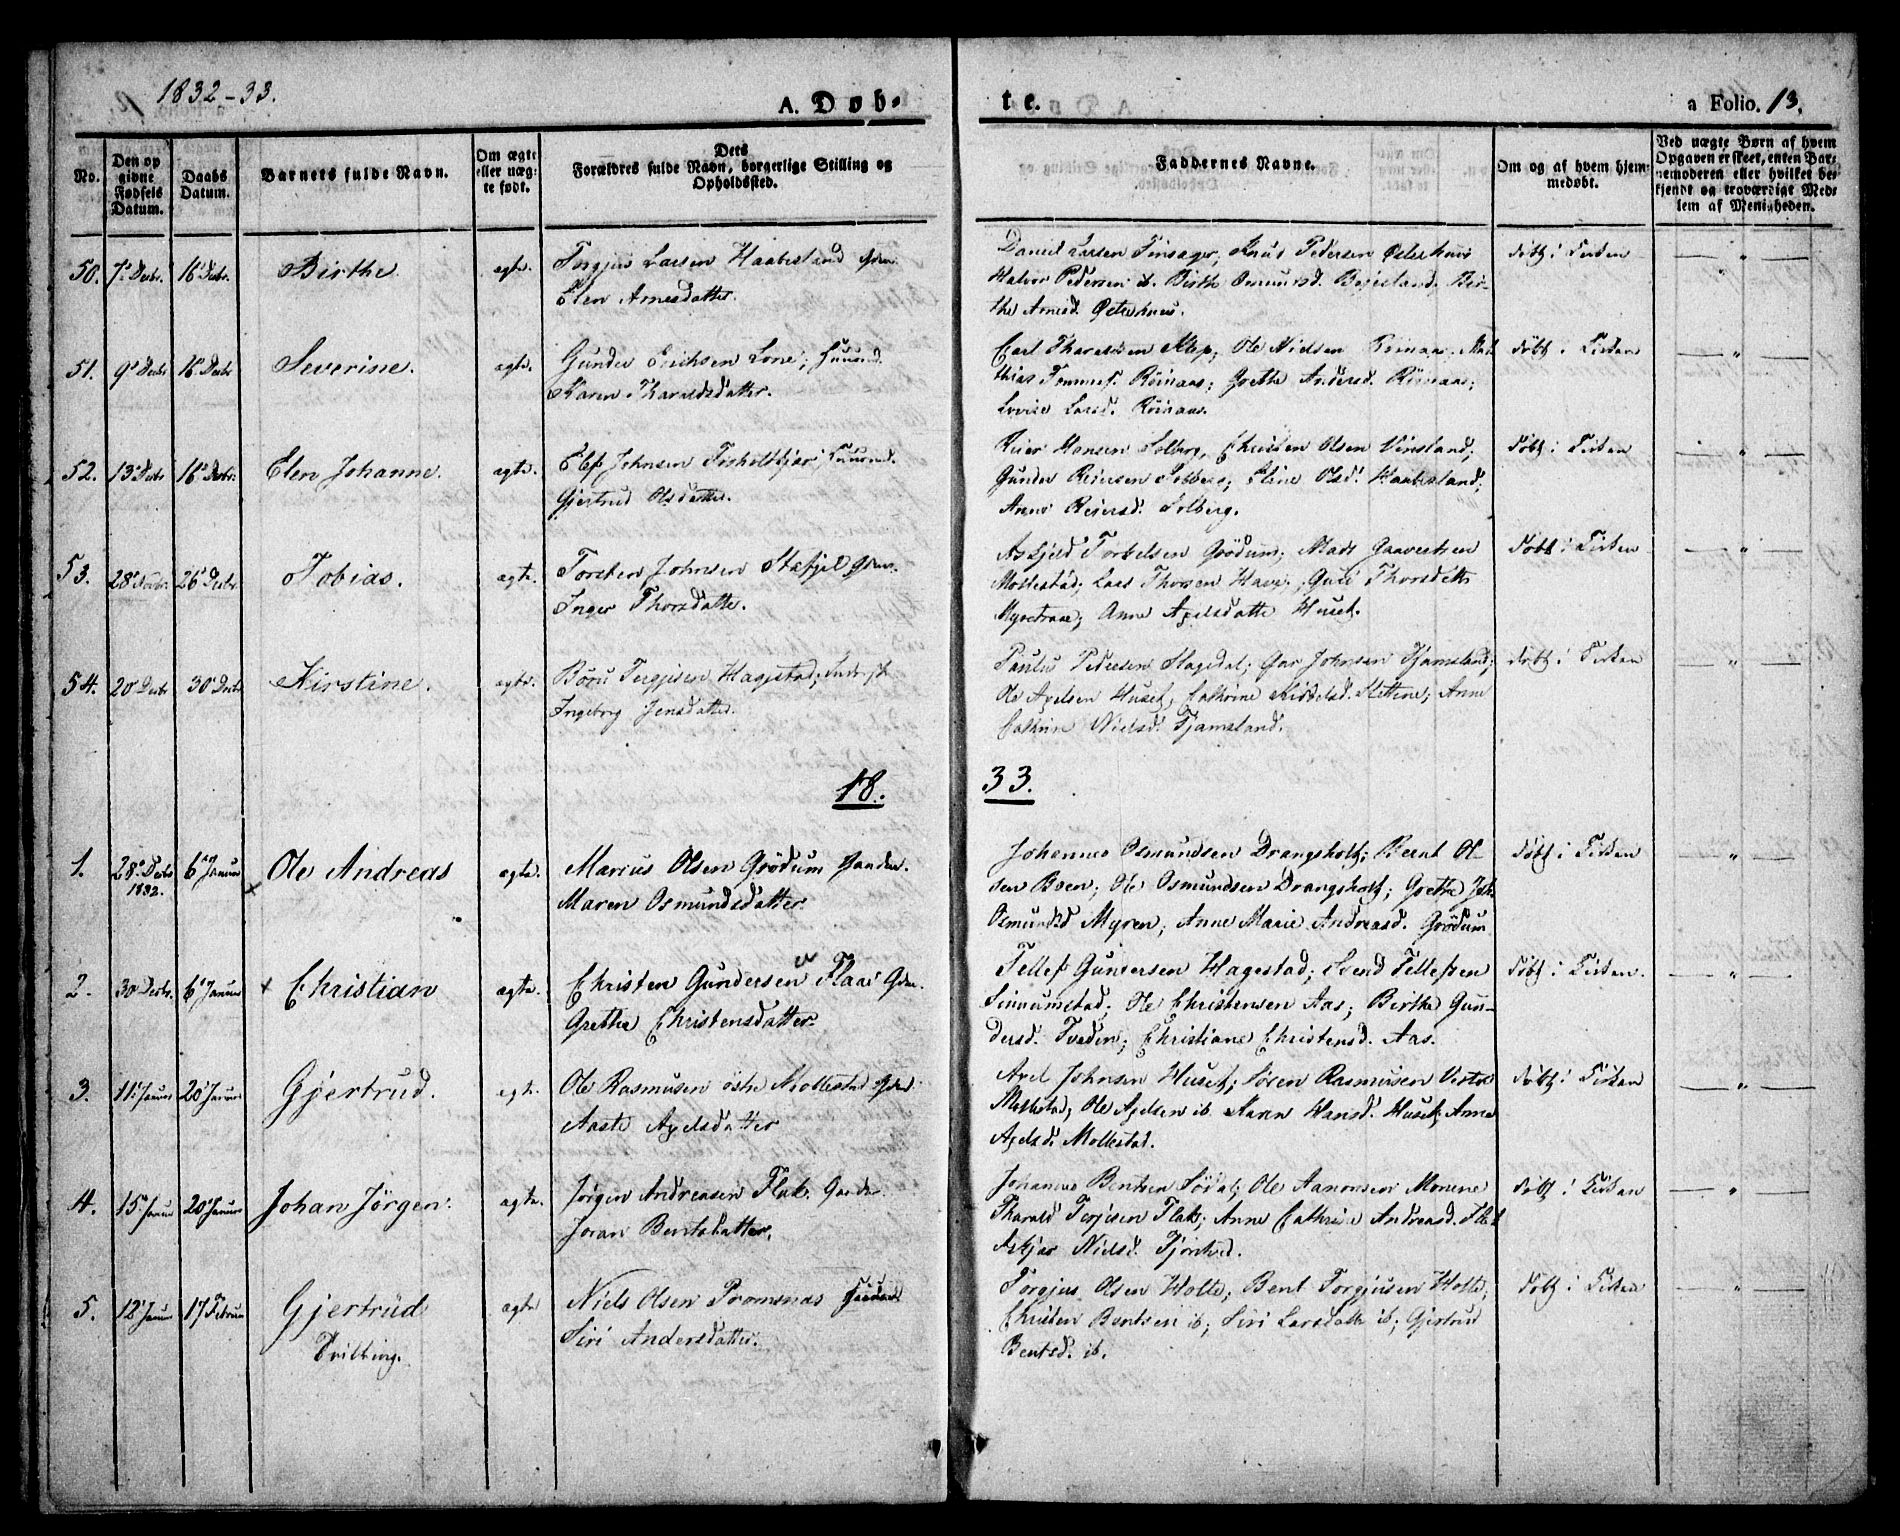 1832-33.
A. Døb-
te.
a Folio. 13.
No.
Den op
givne
Fødsels
Datum.
Daabs
Datum.
Barnets fulde Navn.
Om ægte
eller uæg-
te født.
Dets
Forældres fulde Navn, borgerlige Stilling og
Opholdssted.
Faddernes Navne.
Om og af hvem hjem-
medøbt.
Ved uægte Børn af hvem
Opgaven er skeet, enten Bar-
nemoderen eller hvilket be-
kjendt og troværdigt Med-
lem af Menigheden.
50. 7' Decbr. 16' Decbr. Birthe. ægte. Torgjus Larsen Haabestand
Elen Arnesdatter.
Daniel Larsen Tinsager, Knud Pedersen Østerhuus
Halvor Pedersen ib. Birthe Osmunsd. Bojesland, Bir-
the Arnesd. Østerhuus.
døbt i Kirken — " —
51. 9' Decbr 16' Decbr Severine. ægte. Gunder Erichsen Lone, Huusmd.
Karen Tharaldsdatter.
Carl Tharaldsen Klep, Ole Nielsen Röinaas, Mat
thias Tommes. Röinaas; Grethe Andersd. Röinaas;
Lovise Larsd. Röinaas.
døbt i Kirken — " —
52. 13' Decbr 16' Decbr. Elen Johanne. ægte. Elef Johnsen Fiskeldkjær, Huusmd.
Gjertrud Olsdatter.
Reier Hansen Solberg, Christen Olsen Vinsland,
Gunder Reiersen Solberg; Stine Olsd. Haabesland;
Anne Reiersd. Solberg.
døbt i Kirken — " —
53. 28' 26' Decbr Tobias. ægte. Torsten Johnsen Stafjel
Inger Thorsdatter.
Askjeld Torkelsen Grödum; Mads Gaaversen
Mollestad; Lars Thorsen Have; Guro Thorsdatter
Myretraae; Anne Axelsdatter Huset.
døbt i Kirken — " —
54. 20' Decbr 30' Decbr Kirstine. ægte. Böru Tergjesen Hagestad, Inderst
Ingeborg Jensdatter.
Paulus Pedersen Slagedal; Gar Johnsen Tjamsland;
Ole Axelsen Huset, Cathrine Kittelsd. Slettene; Anne
Cathrine Nielsd. Tjamsland.
døbt i Kirken — " —
18. 33.
1. 28' Decbr
1832. 6' Januar × Ole Andreas ægte. Marius Olsen Grödum
Maren Osmundsdatter.
Johannes Osmundsen Drangsholt; Bernt Ol-
sen Boen; Ole Osmundsen Drangsholt; Grethe
Osmundsd Myren; Anne Marie Andreasd. Grödum
døbt i Kirken — " —
2. 30' Decbr. 6' Januar × Christian ægte. Christen Gundersen Flaa
Grethe Christensdatter.
Tellef Gundersen Hagestad; Svend Tellefsen
Simunstad; Ole Christensen Aas; Birthe Gun-
dersd. Tveden; Christiane Christensd. Aas.
døbt i Kirken. — " —
3. 11' Januar 20' Januar Gjertrud. ægte. Ole Rasmusen östre Mollestad
Aaste Axelsdatter
Axel Johnsen Huset; Sören Rasmusen Vestre
Mollestad; Ole Axelsen ib Karen Hansd. Huset; Anne
Axelsd. Mollestad.
døbt i Kirken — " —
4. 15' Januar 20' Januar Johan Jörgen. ægte. Jörgen Andreasen Flak.
Joran Bentsdatter.
Johannes Bentsen Södal; Ole Aanonsen Monene
Tharald Terjesen Flak; Anne Cathrine Andreasd. Flak
Askjær Nielsd. Tjönhed.
døbt i Kirken — " —
5. 12' Januar 17' Februar Gjertrud
Tvilling. ægte Niels Olsen Promenas
Siri Andersdatter.
Torgjus Olsen Holte; Bent Torgjusen Holte;
Christen Bentsen ib; Siri Larsdatter ib; Gjertrud
Bentsd. ib.
døbt i Kirken — " —